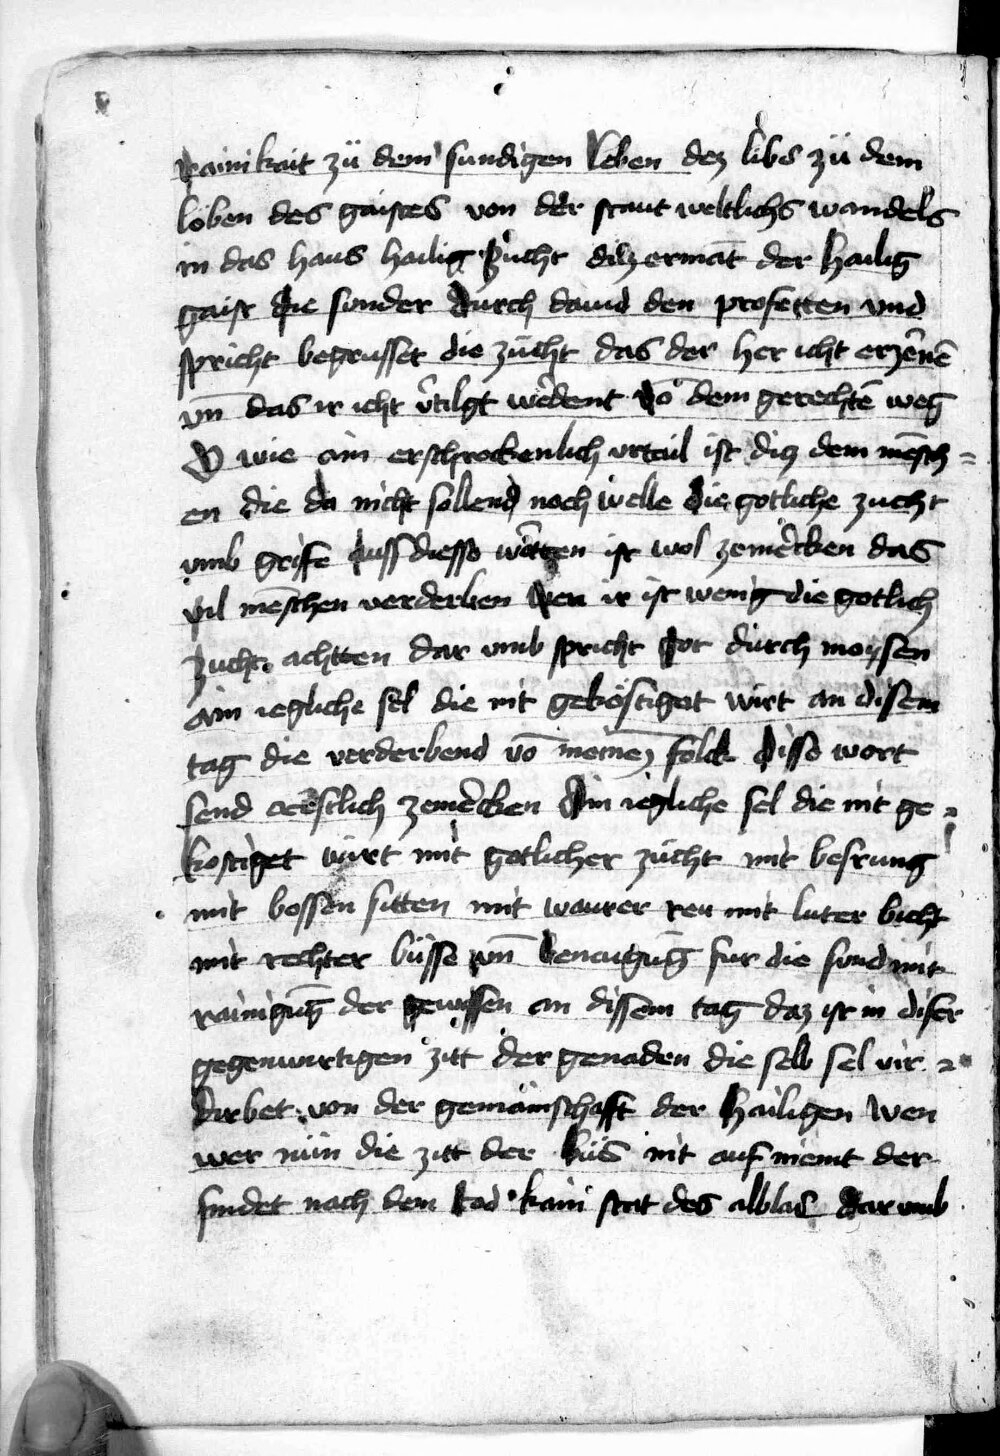 rainikait zü dem sundigen leben dez libs zü dem
löben des gaistes von der statt weltlichs wandels
in das haus hailig zücht ditz ermāt der hailig
gaist die sunder durch dauid den profetten und
spricht begrusset die zücht das der her icht erzürnē
vn̄ das ir icht v̄tilgt werdent vō dem gerechtē weg
O wie ain erschrockenlich urteil ist ditz dem mēsch=
en die da nicht sollend noch welle die gotliche zucht
umb grife auss diesse wortten ist wol zemercken das
vil mēschen verderben wen ir ist wenig die gotlich
zucht achtten dar umb spricht got durch moysen
Ain iegliche sel die nit geköstiget wirt an disem
tag die verderbend vō meinez folck disse wort
send ernstlich zemercken Ain iegliche sel die nit ge=
kostiget würt mit gotlicher zücht mit besrung
mit bossen sitten mit waurer reu mit luter bicht
mit rechter büsse vn̄ benaugūg fur die sund mit
rainigūg der gewissen an dissem tag daz ist in diser
gegenwurtigen zitt der genaden die selb sel vir=
dirbet von der gemainschafft der hailigen wen
wer nün die zitt der büs nit auf niemt der
findet nach dem tod kain stat des ablas dar umb